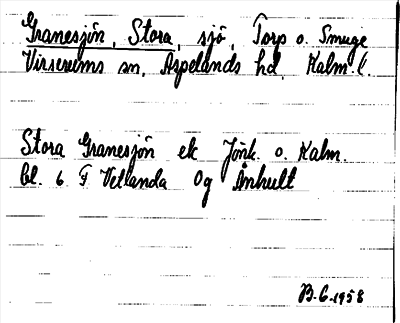 Granesjön, Stora, sjö, Torp o. Smuge
Virserums sn, Aspelands hd, Kalm. l.
Stora Granesjön ek Jönk. o. Kalm.
bl. 6 F Vetlanda Og Änhult
B.G. 1958